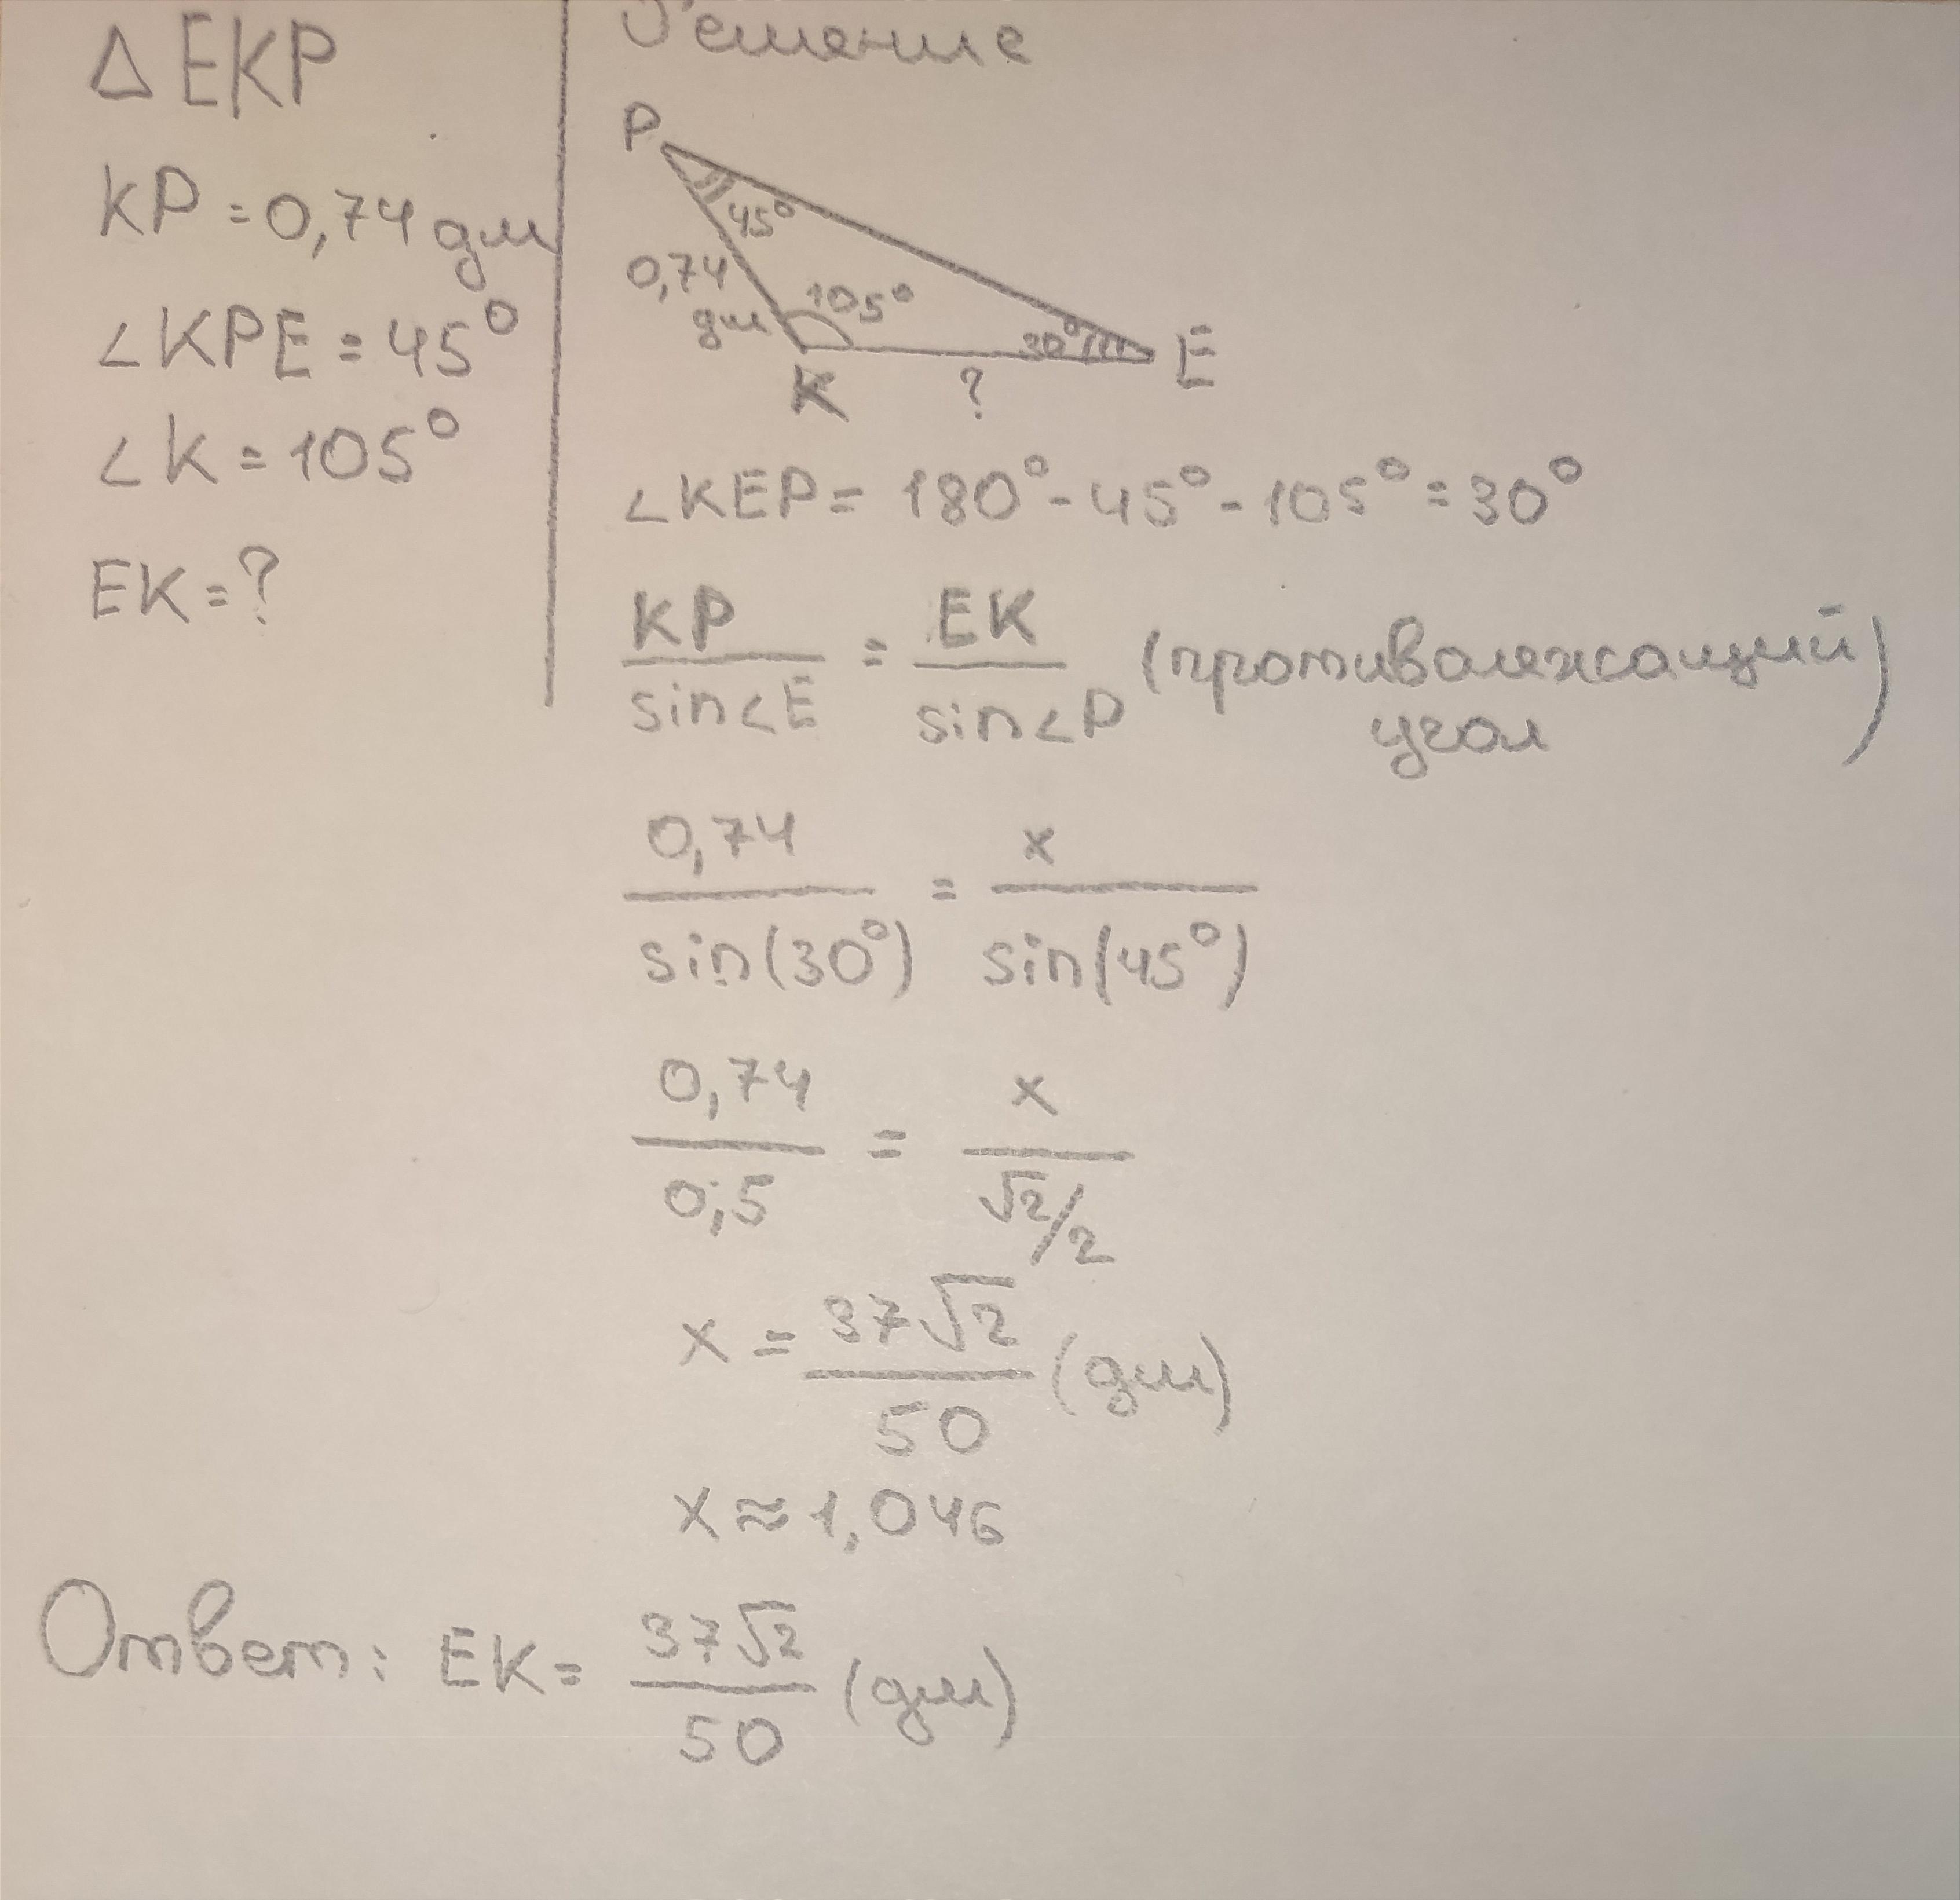 △ EKP
KP = 0,74 дм
∠KPE = 45°
∠K = 105°
EK = ?
Решение
P
45°
0,74
дм
105°
30°
E
K
?
∠KEP = 180° - 45° - 105° = 30°
KP / sin∠E = EK / sin∠P (противолежащий
угол)
0,74 / sin(30°) = x / sin(45°)
0,74 / 0,5 = x / √2/2
x = 37√2 / 50 (дм)
x ≈ 1,046
Ответ: EK = 37√2 / 50 (дм)